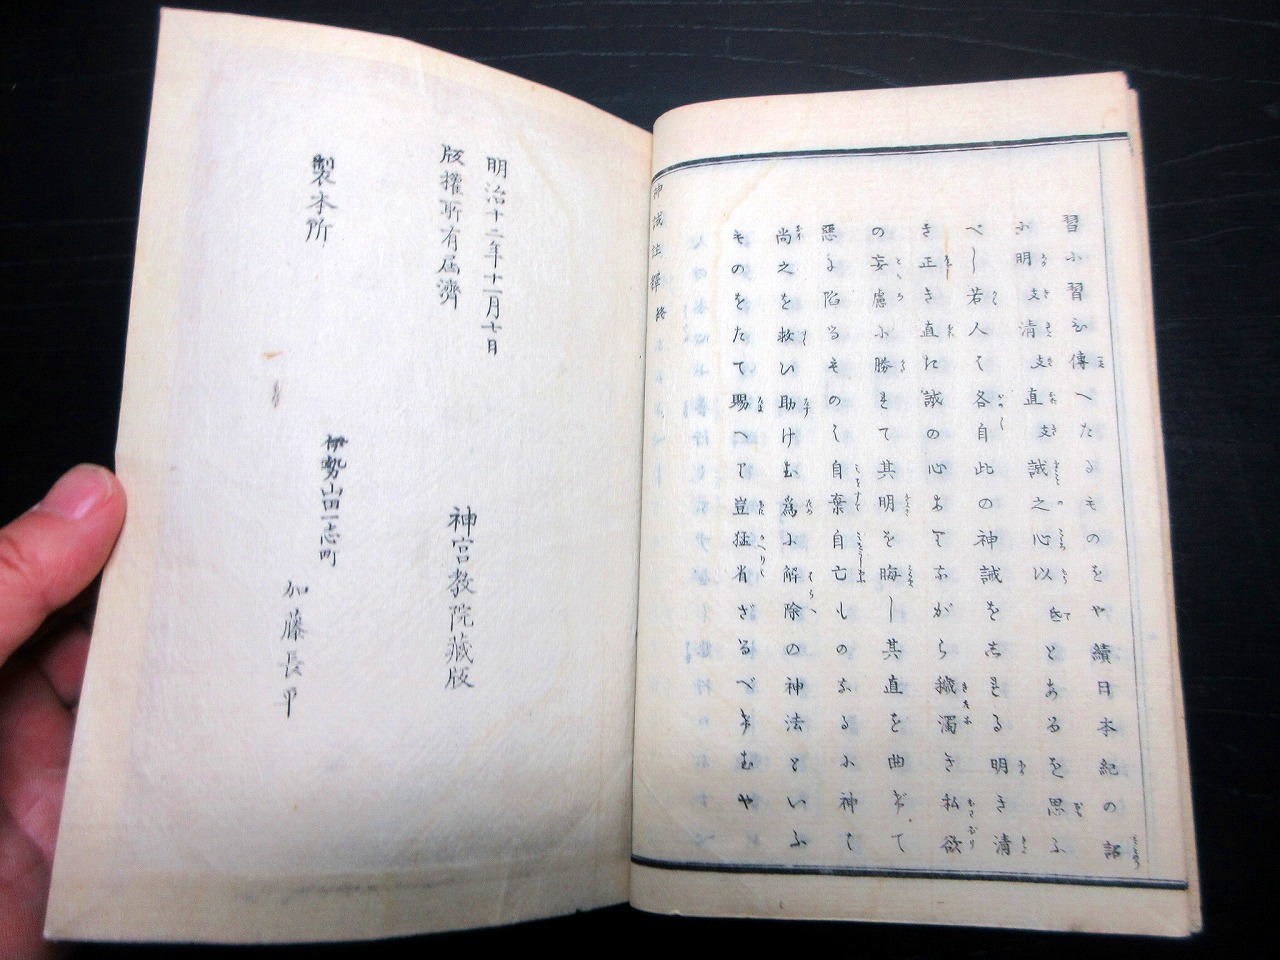 習ふ習ひ傳へたるものをや續日本紀の詔
ふ明支清支直支誠之心以弖とある(を)思ふ
べし若人て各自此の神誡を忘れる明き清
き正き直き誠の心ありながら穢濁き私欲
の妄慮ふ勝れて其明を晦し其直を曲げて
惡に陷るものハ自棄自亡しのなるふ神ハ
尚之を救ひ助けむ爲ふ解除の神法といふ
ものをたて賜へて豈猛省ざるべけむや
神誡注釋終
明治十二年十一月七日
版權所有届濟
神宮教院藏版
製本所
伊勢山田一志町
加藤長平